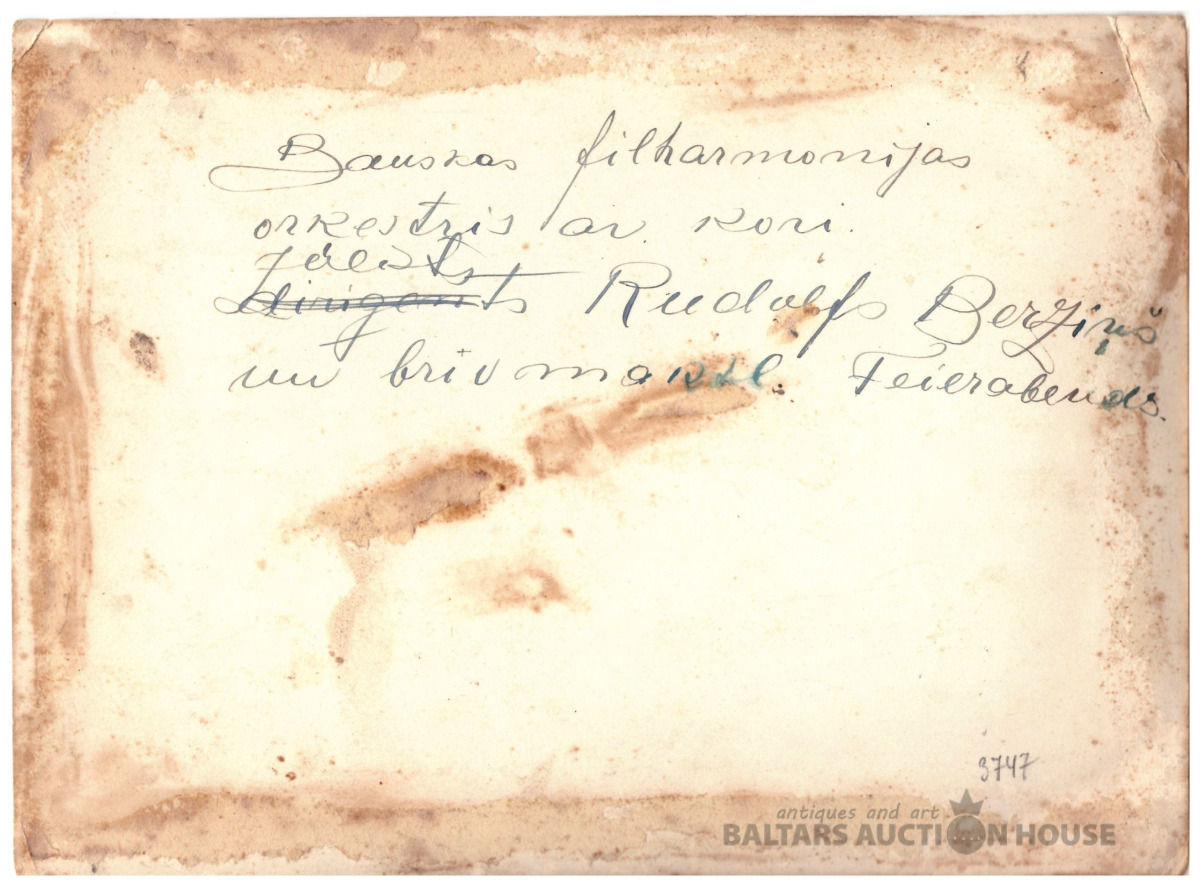 Bauskas filharmonijas
orkestris ar kori.
solists
dirigents Rudolfs Berziņš
un brivmaksl. Feierabends.
3747
antiques and art
BALTARS AUCTION HOUSE